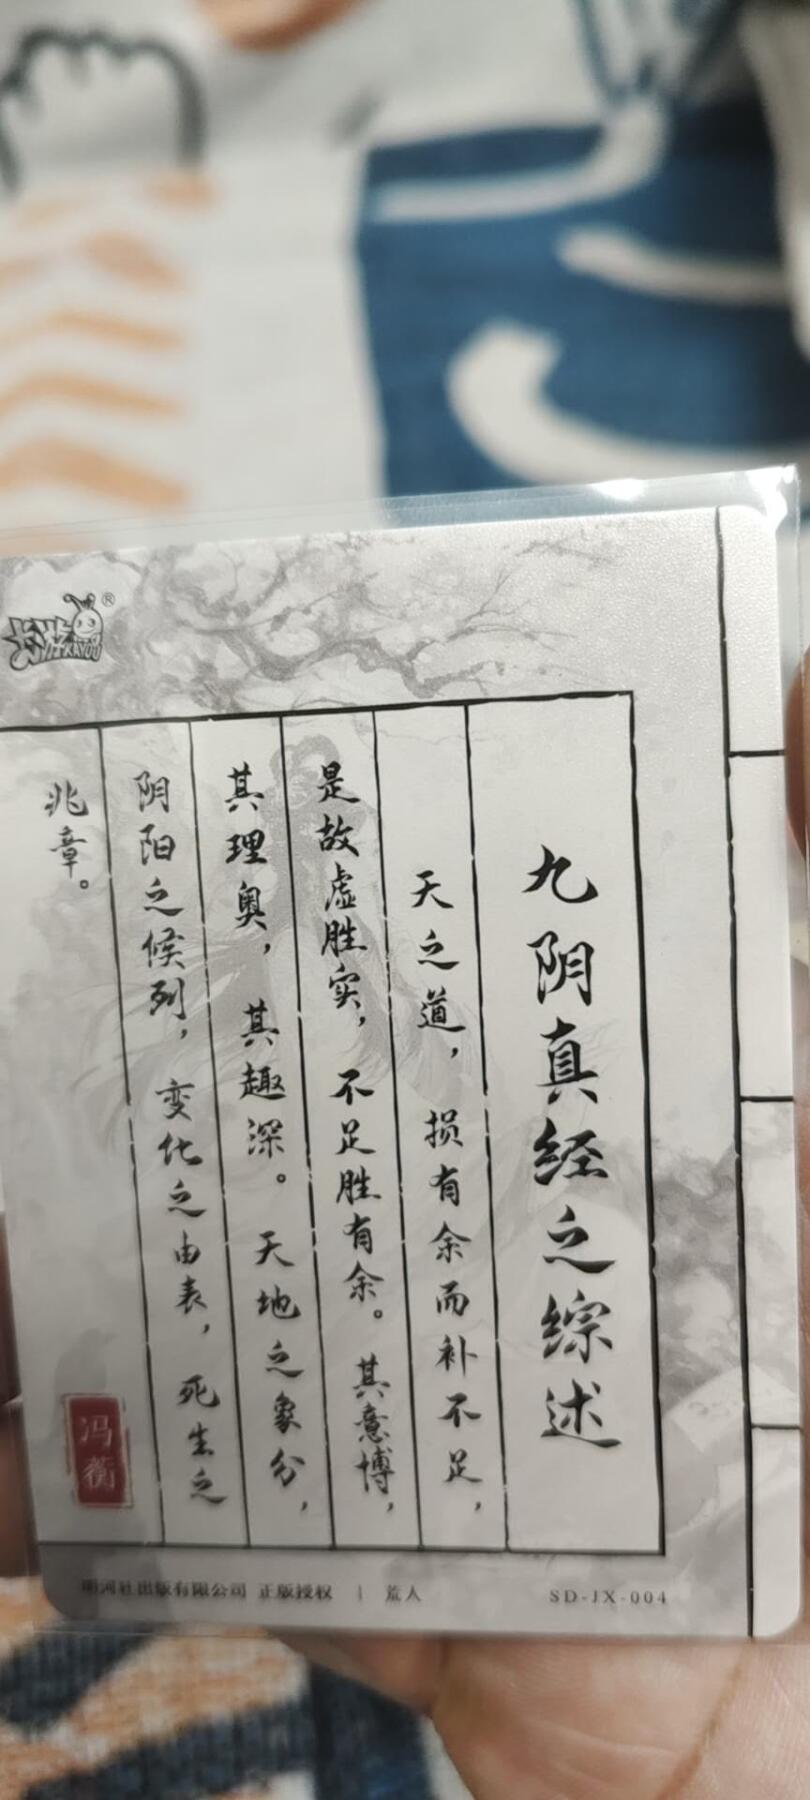 卡游
KAYOU
®
九阴真经之综述
天之道，损有余而补不足，
是故虚胜实，不足胜有余。其意博，
其理奥，其趣深。天地之象分，
阴阳之候列，变化之由表，死生之
兆章。
冯蘅
明河社出版有限公司 正版授权 | 荒人
SD-JX-004